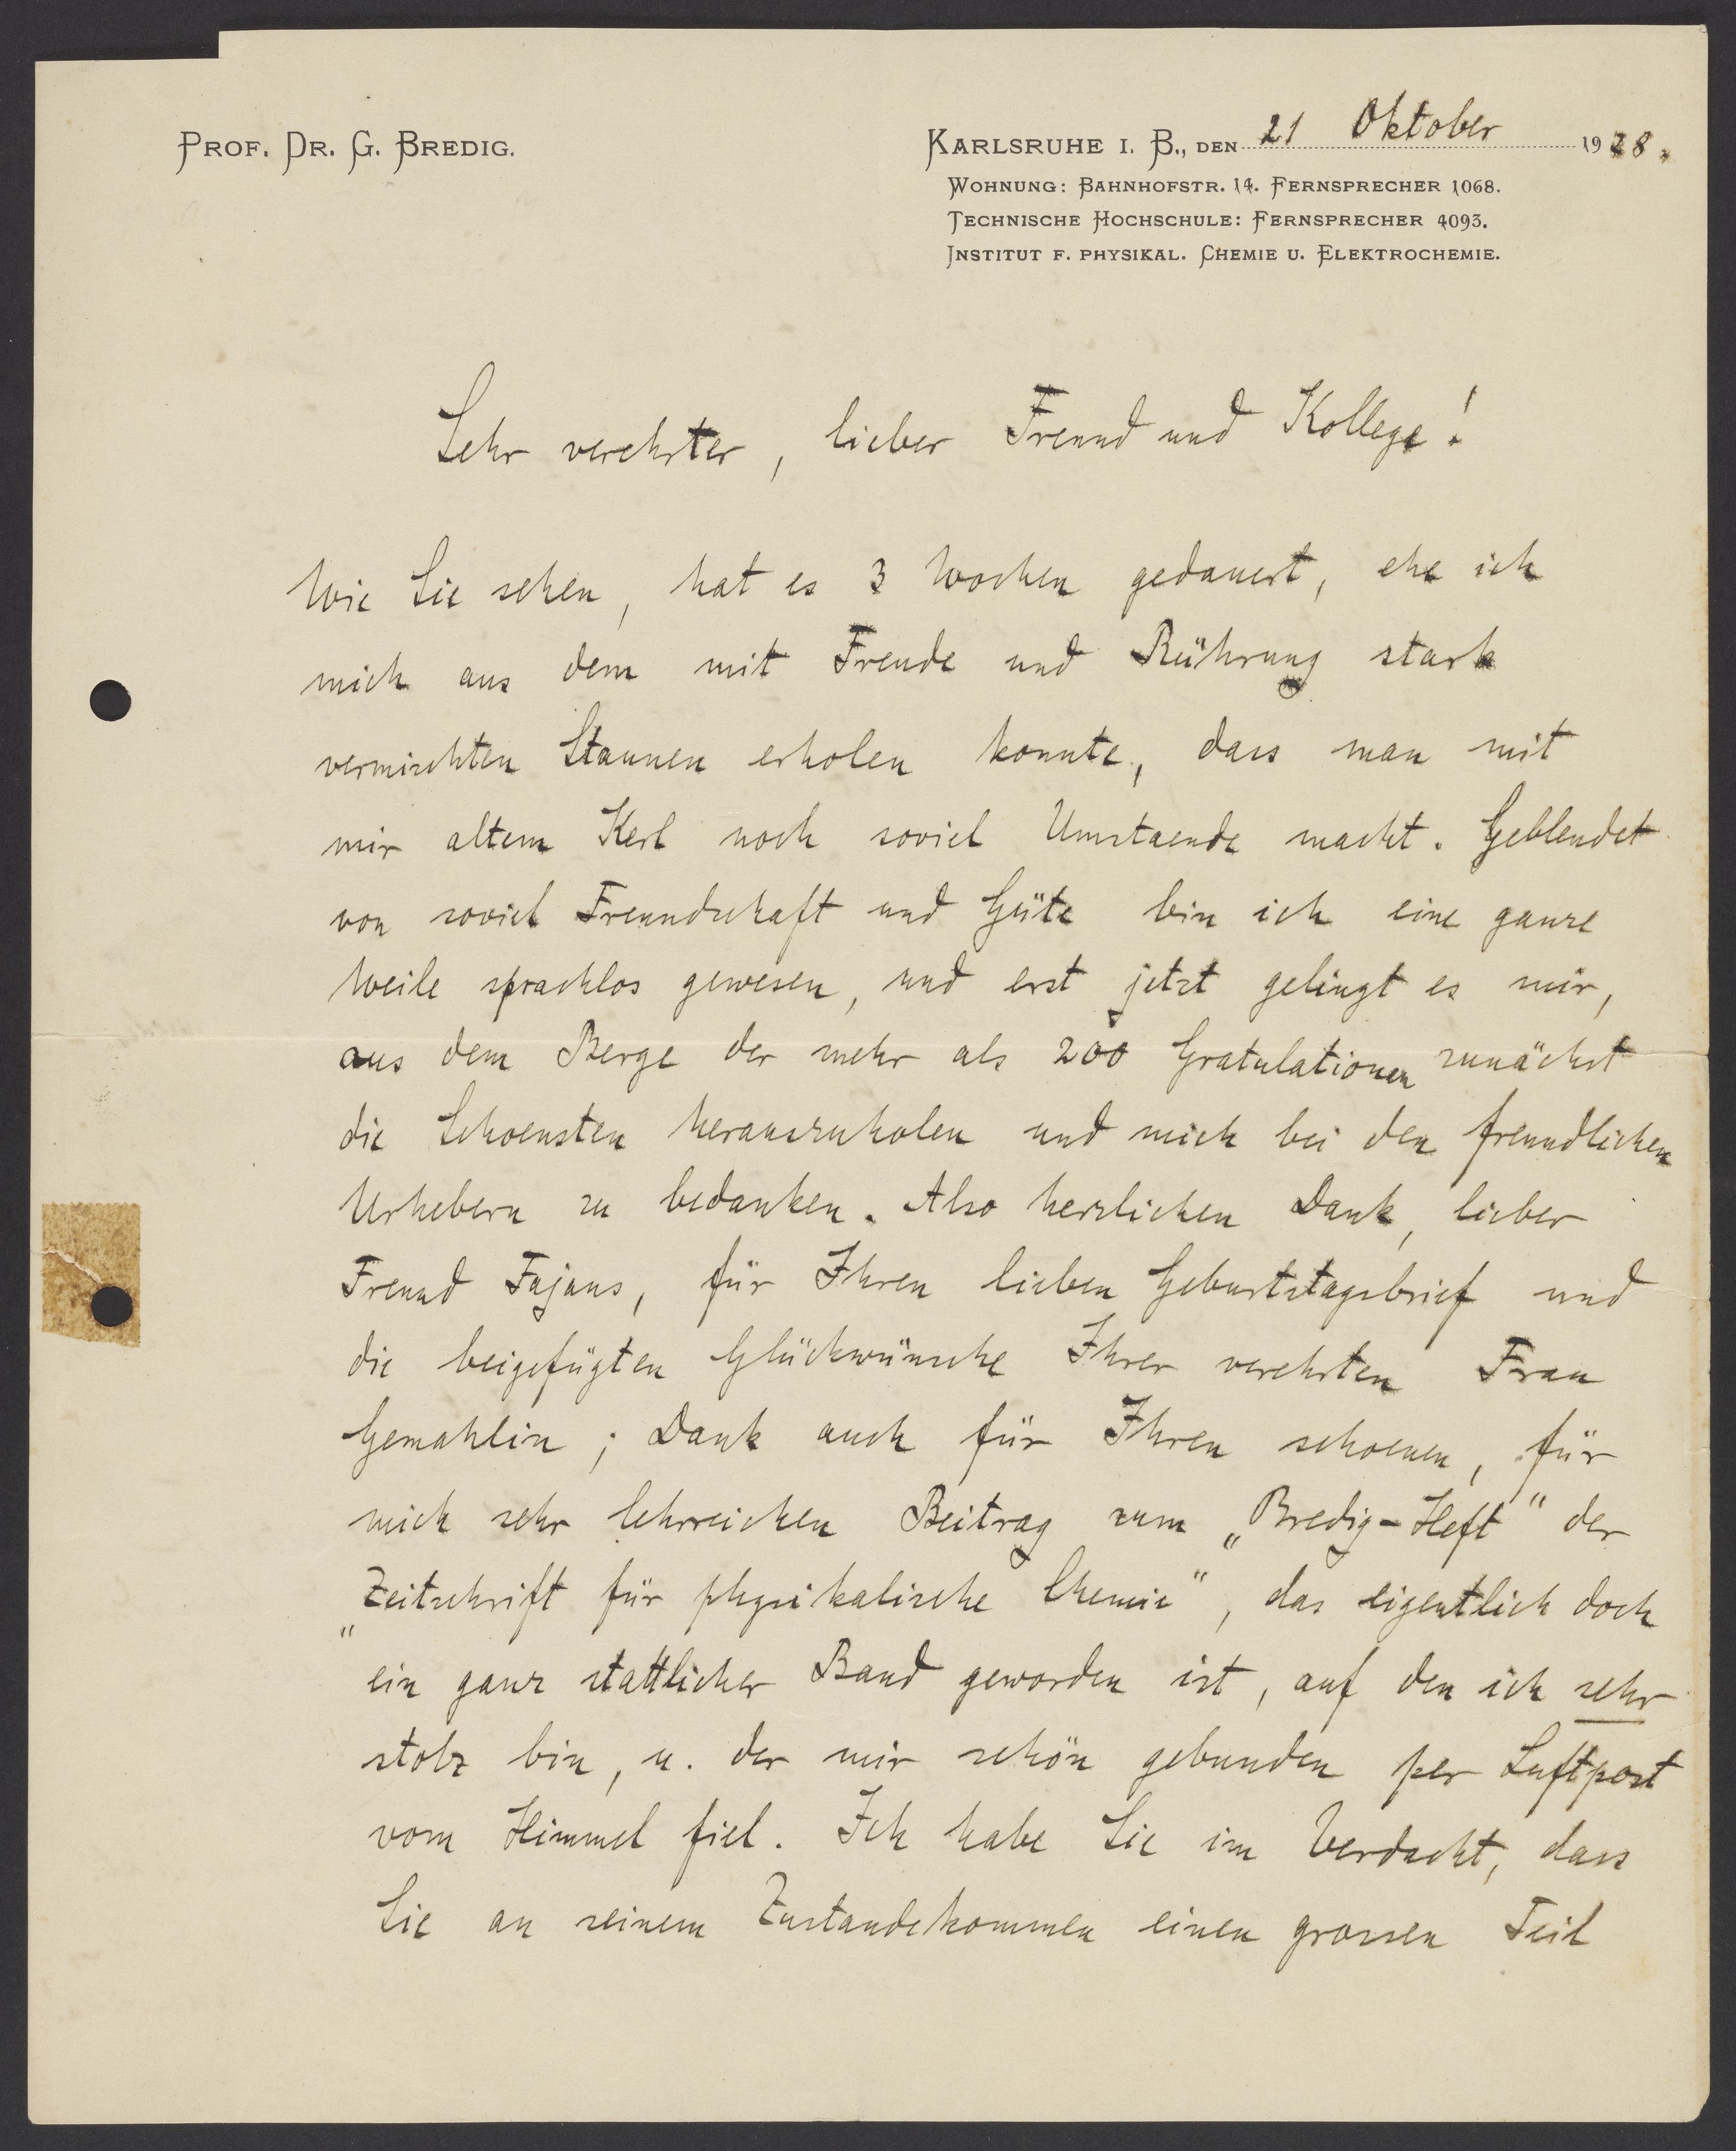 PROF. DR. G. BREDIG.
KARLSRUHE I. B., DEN 21 Oktober 1928.
WOHNUNG: BAHNHOFSTR. 14. FERNSPRECHER 1068.
TECHNISCHE HOCHSCHULE: FERNSPRECHER 4093.
INSTITUT F. PHYSIKAL. CHEMIE U. ELEKTROCHEMIE.
Sehr verehrter, lieber Freund und Kollege!
Wie Sie sehen, hat es 3 Wochen gedauert, ehe ich
mich aus dem mit Freude und Rührung stark
vermischten Staunen erholen konnte, dass man mit
mir altem Kerl noch soviel Umstaende macht. Geblendet
von soviel Freundschaft und Güte bin ich eine ganze
Weile sprachlos gewesen, und erst jetzt gelingt es mir,
aus dem Berge der mehr als 200 Gratulationen zunächst
die Schoensten herauszuholen und mich bei den freundlichen
Urhebern zu bedanken. Also herzlichen Dank, lieber
Freund Fajans, für Ihren lieben Geburtstagsbrief und
die beigefügten Glückwünsche Ihrer verehrten Frau
Gemahlin; Dank auch für Ihren schoenen, für
mich sehr lehrreichen Beitrag zum „Bredig-Heft" der
„Zeitschrift für physikalische Chemie", das eigentlich doch
ein ganz stattlicher Band geworden ist, auf den ich sehr
stolz bin, u. der mir schön gebunden per Luftpost
vom Himmel fiel. Ich habe Sie im Verdacht, dass
Sie an seinem Zustandekommen einen grossen Teil